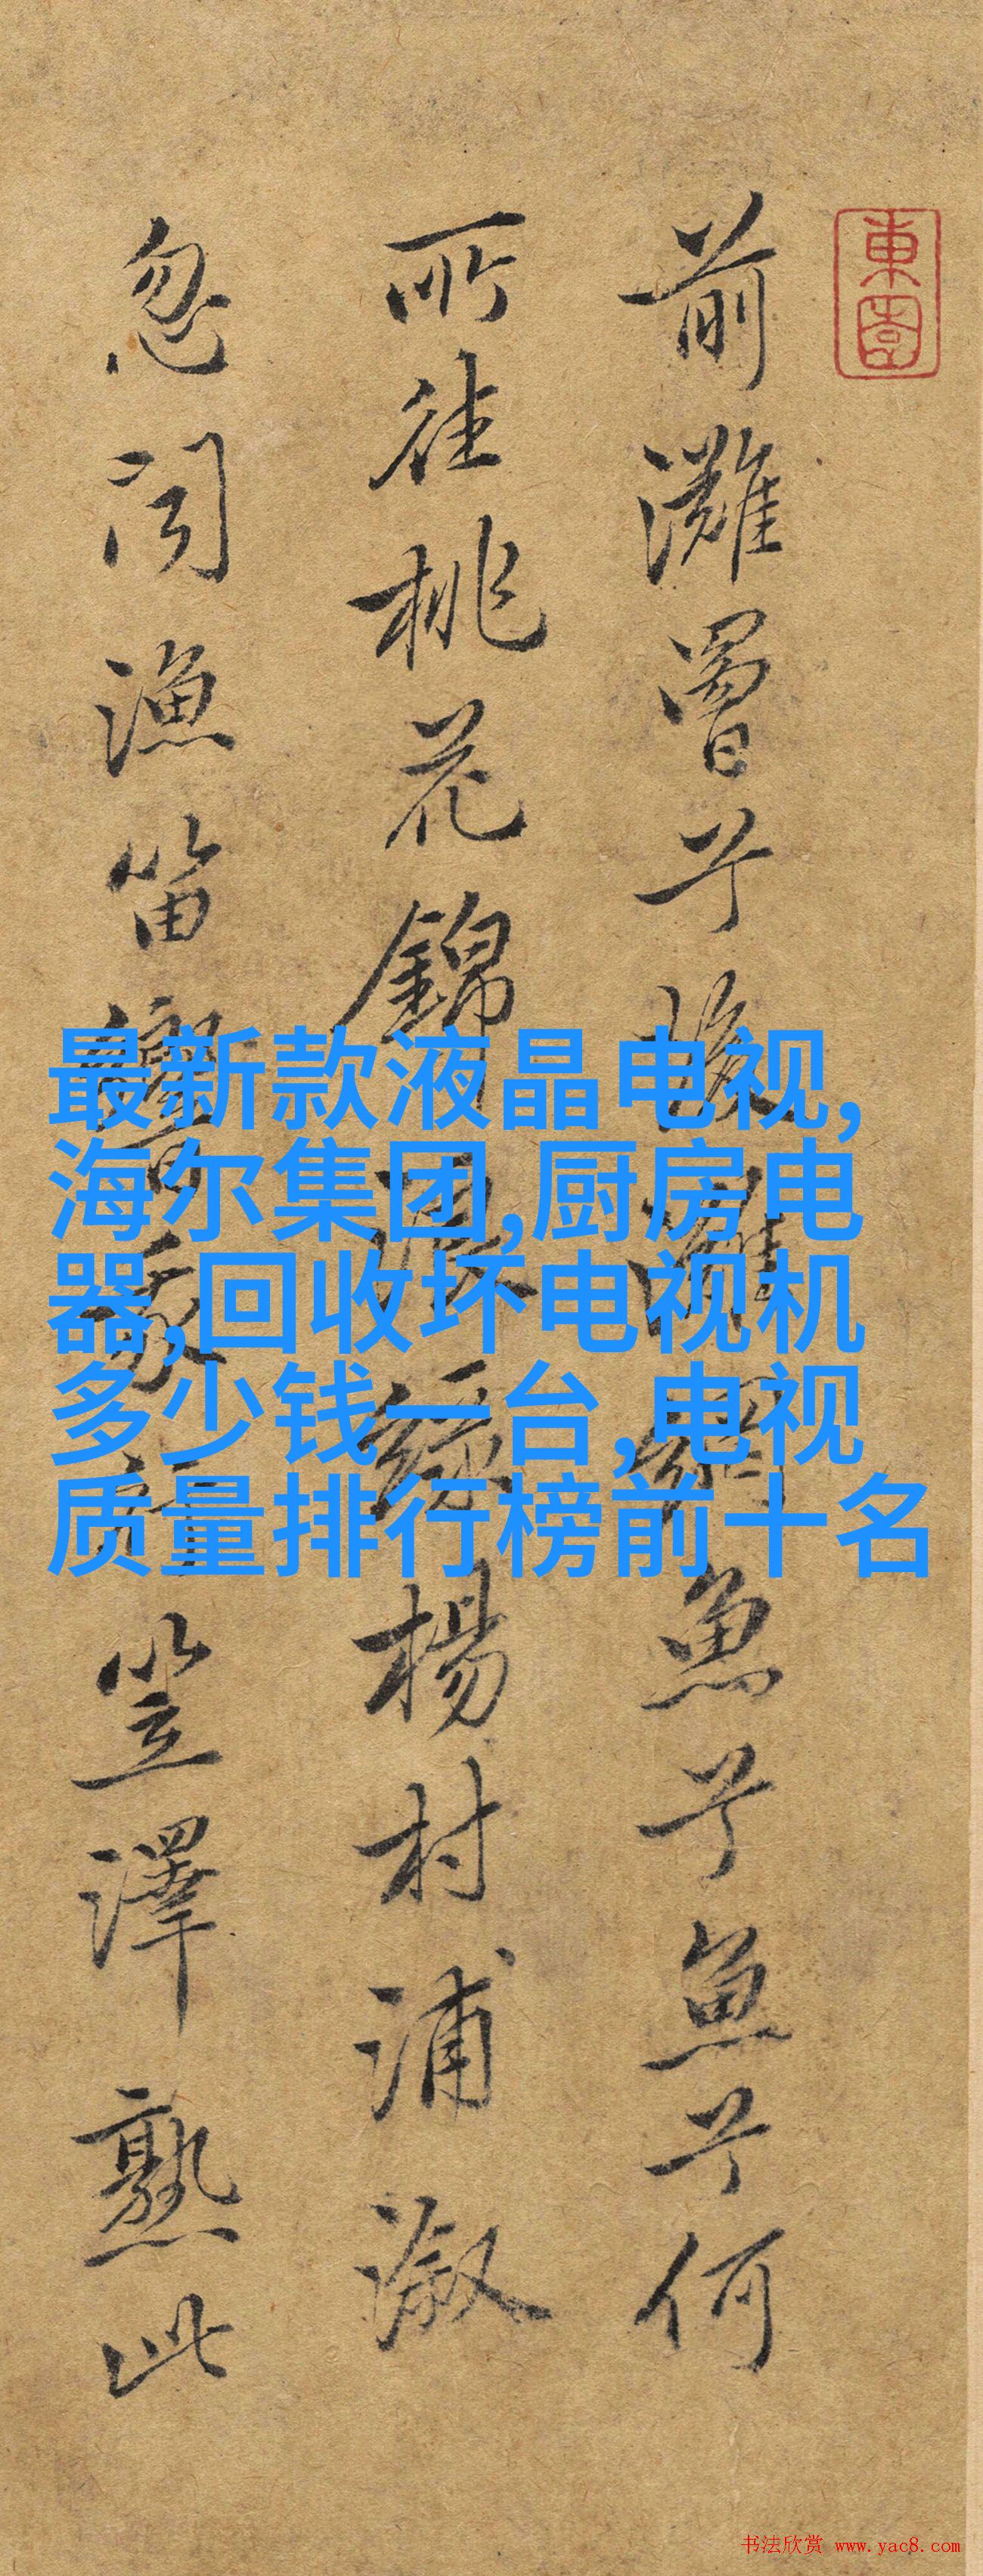 東園
前灘罾兮後灘網魚兮魚兮何
所往桃花錦浪綠楊村浦溆
忽聞漁笛響我行笠澤熟此
最新款液晶电视,
海尔集团,厨房电
器,回收坏电视机
多少钱一台,电视
质量排行榜前十名
书法欣赏 www.yac8.com